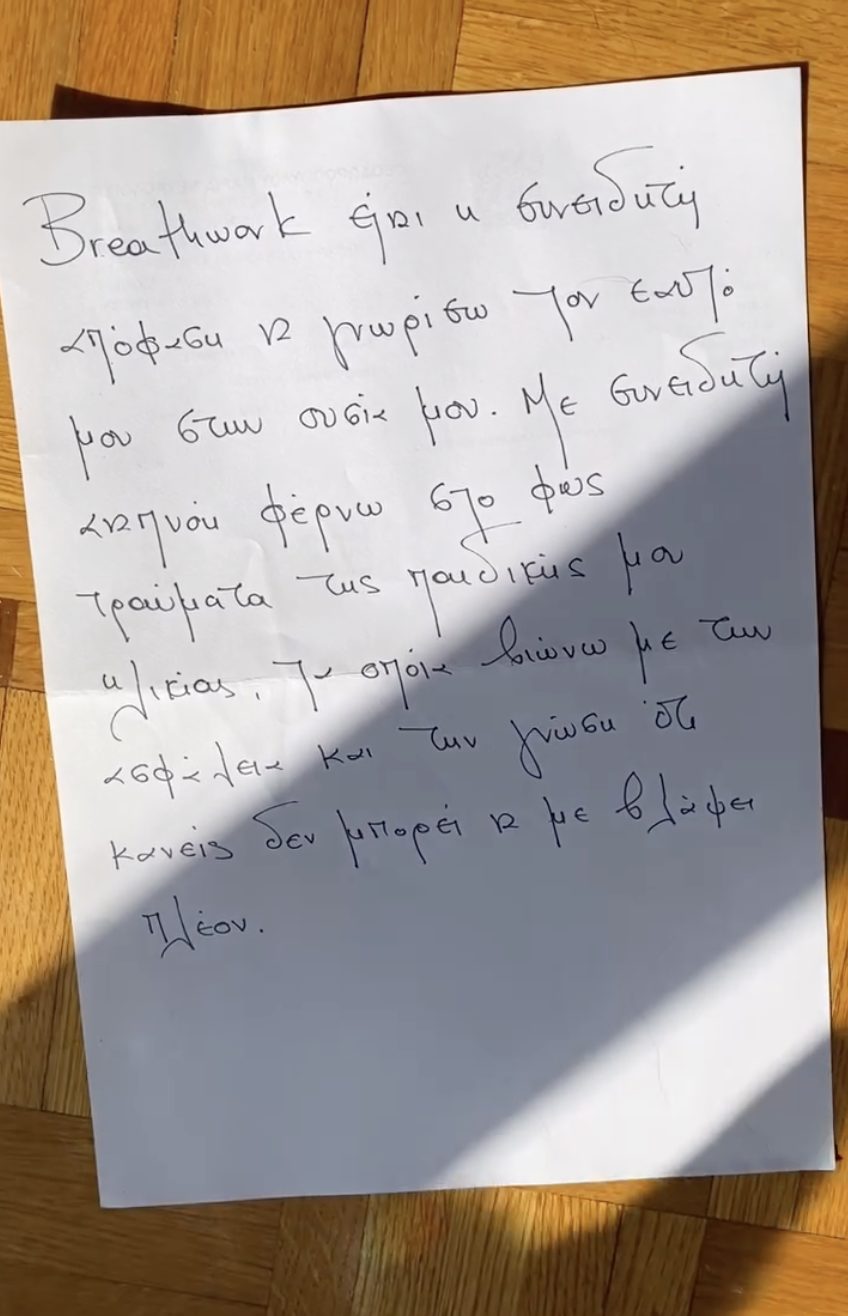 Breathwork είναι η συνειδητή
απόφαση να γνωρίσω τον εαυτό
μου στην ουσία μου. Με συνειδητή
αναπνοή φέρνω στο φως
τραύματα της παιδικής μου
ηλικίας, τα οποία βιώνω με την
ασφάλεια και την γνώση ότι
κανείς δεν μπορεί να με βλάψει
πλέον.